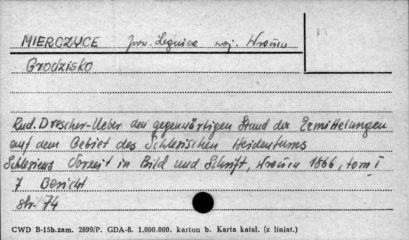 MIERCZYCE pow. Legnica woj. Wrocław
Grodzisko
Rud. Drescher-Ueber den gegenwärtigen Stand der Ermittelungen
auf dem Gebiet des Schlesischen Heidentums
Schlesiens Vorzeit in Bild und Schrift, Wrocław 1866, tom I
7 Bericht
str. 74
CWD B-15b.zam. 2899/P. GDA-8. 1.000.000. karton b. Karta katal. (z liniat.)